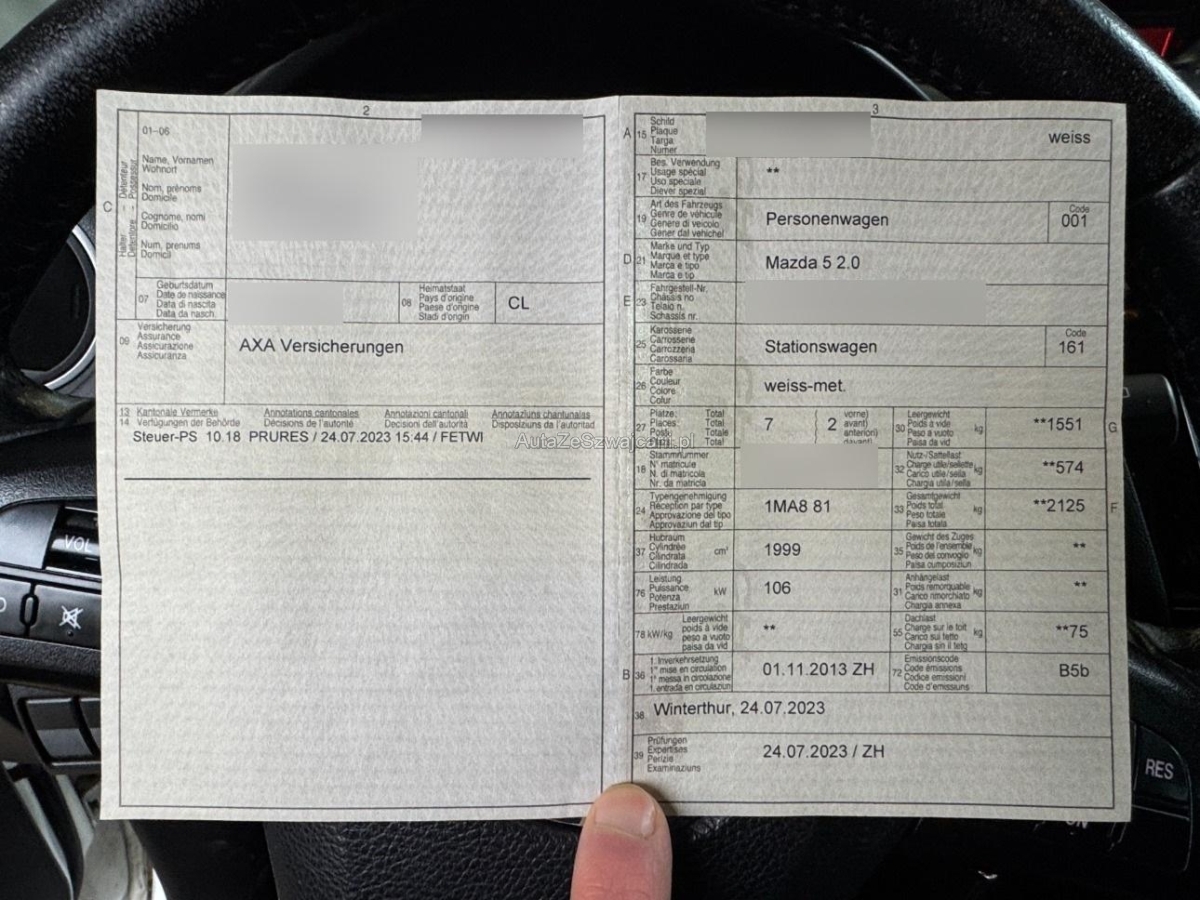 2
01-06
C
Halter - Détenteur
Detentore - Possessur
Name, Vornamen
Wohnort
Nom, prénoms
Domicile
Cognome, nomi
Domicilio
Num, prenums
Domicil
07
Geburtsdatum
Date de naissance
Data di nascita
Data da nasch.
08
Heimatstaat
Pays d'origine
Paese d'origine
Stadi d'origin
CL
09
Versicherung
Assurance
Assicurazione
Assicuranza
AXA Versicherungen
13 Kantonale Vermerke Annotations cantonales Annotazioni cantonali Annotaziuns chantunalas
14 Verfügungen der Behörde Décisions de l'autorité Decisioni dell'autorità Dispoziziuns da l'autoritad
Steuer-PS 10.18 PRURES / 24.07.2023 15:44 / FETWI
AutaZeSzwajcarii.pl
3
A 15
Schild
Plaque
Targa
Numer
weiss
17
Bes. Verwendung
Usage spécial
Uso speciale
Diever spezial
**
19
Art des Fahrzeugs
Genre de véhicule
Genere di veicolo
Gener dal vehichel
Personenwagen
Code
001
D 21
Marke und Typ
Marque et type
Marca e tipo
Marca e tip
Mazda 5 2.0
E 23
Fahrgestell-Nr.
Châssis no
Telaio n.
Schassis nr.
25
Karosserie
Carrosserie
Carrozzeria
Carossaria
Stationswagen
Code
161
26
Farbe
Couleur
Colore
Colur
weiss-met.
27
Plätze: Total
Places: Total
Posti: Totale
Total
7
( 2 vorne)
avant)
anteriori)
davant)
30
Leergewicht
Poids à vide
Peso a vuoto
Paisa da vid
kg
**1551
G
18
Stammnummer
N° matricule
N. di matricola
Nr. da matricla
32
Nutz-/Sattellast
Charge utile/sellette
Carico utile/sella
Chargia utila/sella
kg
**574
24
Typengenehmigung
Réception par type
Approvazione del tipo
Approvaziun dal tip
1MA8 81
33
Gesamtgewicht
Poids total
Peso totale
Paisa totala
kg
**2125
F
37
Hubraum
Cylindrée
Cilindrata
Cilindrada
cm³
1999
35
Gewicht des Zuges
Poids de l'ensemble
Peso del convoglio
Paisa cumposiziun
kg
**
76
Leistung
Puissance
Potenza
Prestaziun
kW
106
31
Anhängelast
Poids remorquable
Carico rimorchiato
Chargia annexa
kg
**
78 kW/kg
Leergewicht
poids à vide
peso a vuoto
paisa da vid
**
55
Dachlast
Charge sur le toit
Carico sul tetto
Chargia sin il tetg
kg
**75
B 36
1. Inverkehrsetzung
1re mise en circulation
1a messa in circolazione
1. entrada en circulaziun
01.11.2013 ZH
72
Emissionscode
Code émissions
Codice emissioni
Code d'emissiuns
B5b
38
Winterthur, 24.07.2023
39
Prüfungen
Expertises
Perizie
Examinaziuns
24.07.2023 / ZH
VOL
RES